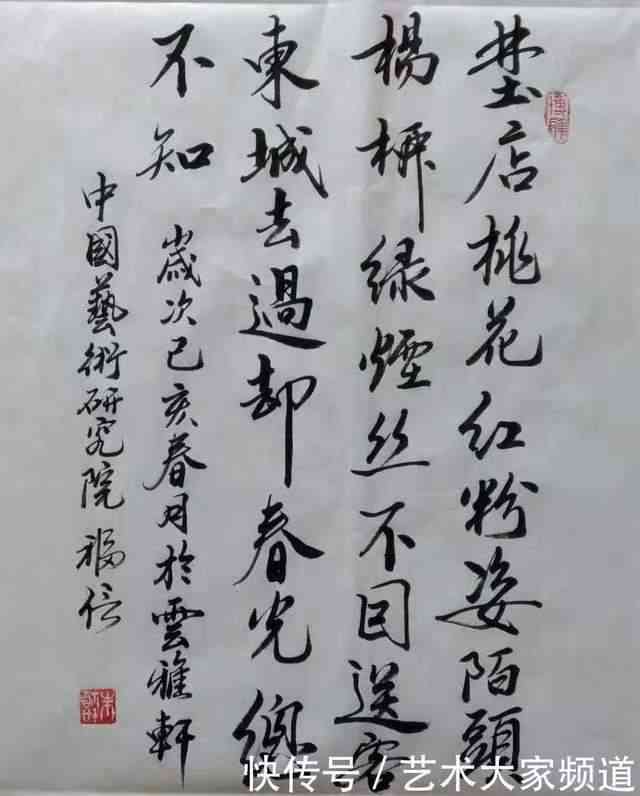 埜店桃花红粉姿陌頭
楊柳绿煙丝不因送客
東城去過却春光總
不知 歲次己亥春月於雲雅軒
中國藝術研究院 福信
快传号 / 艺术大家频道